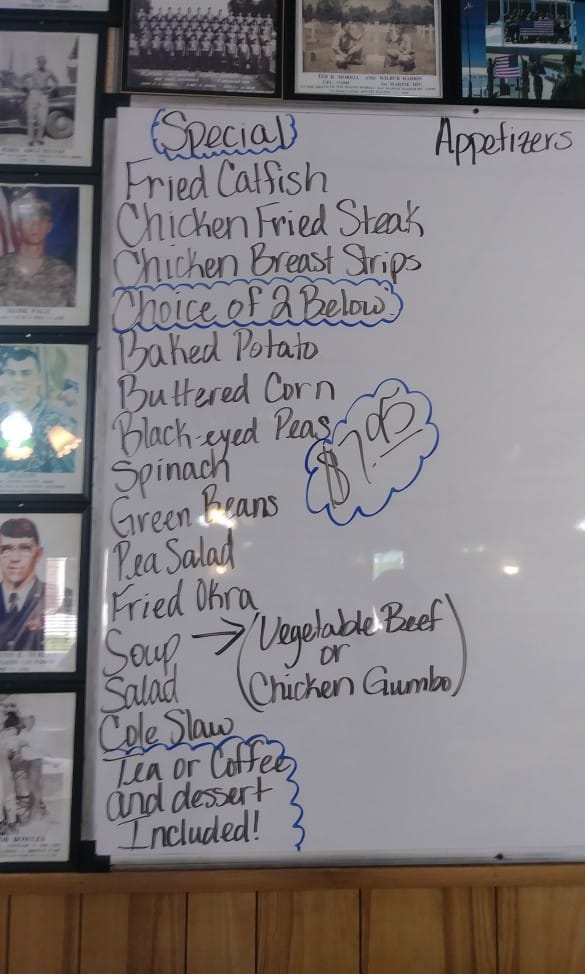 Special
Fried Catfish
Chicken Fried Steak
Chicken Breast Strips
Choice of 2 Below:
Baked Potato
Buttered Corn
Black-eyed Peas
Spinach
Green Beans
Pea Salad
Fried Okra
Soup → (Vegetable Beef
or
Chicken Gumbo)
Salad
Cole Slaw
Tea or Coffee
and dessert
Included!
$7.95
Appetizers
TED R. MORELL AND WILBUR HARDIN